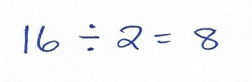 16 ÷ 2 = 8